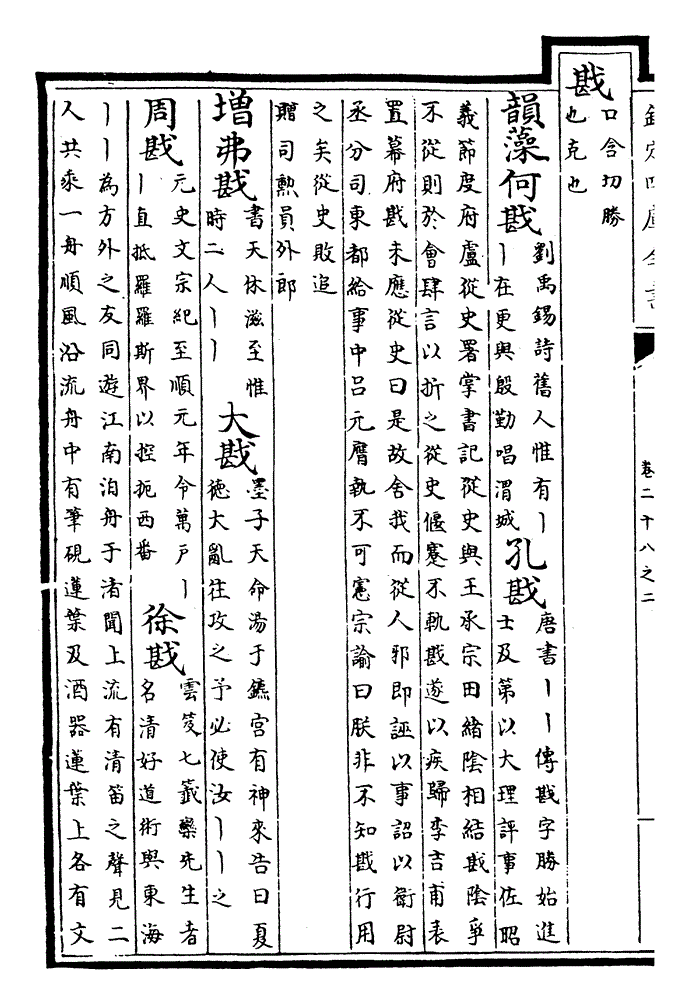 欽定四庫全書
卷二十八之二
戡
口含切勝
也克也
韻藻何戡
劉禹錫詩舊人惟有丨
丨在更與殷勤唱渭城
孔戡
唐書丨丨傳戡字勝始進
士及第以大理評事佐昭
義節度府盧從史署掌書記從史與王承宗田緒陰相結戡陰爭
不從則於會肆言以折之從史偃蹇不軌戡遂以疾歸李吉甫表
置幕府戡未應從史曰是故舍我而從人邪即誣以事詔以衛尉
丞分司東都給事中呂元膺執不可憲宗諭曰朕非不知戡行用
之矣從史敗追
贈司勲員外郎
增弗戡
書天休滋至惟
時二人丨丨
大戡
墨子天命湯于鑣宮有神來告曰夏
徳大亂往攻之予必使汝丨丨之
周戡
元史文宗紀至順元年令萬户丨
丨直抵羅羅斯界以控扼西番
徐戡
雲笈七籤欒先生者
名清好道術與東海
丨丨為方外之友同遊江南泊舟于渚聞上流有清笛之聲見二
人共乘一舟順風沿流舟中有筆硯蓮葉及酒器蓮葉上各有文